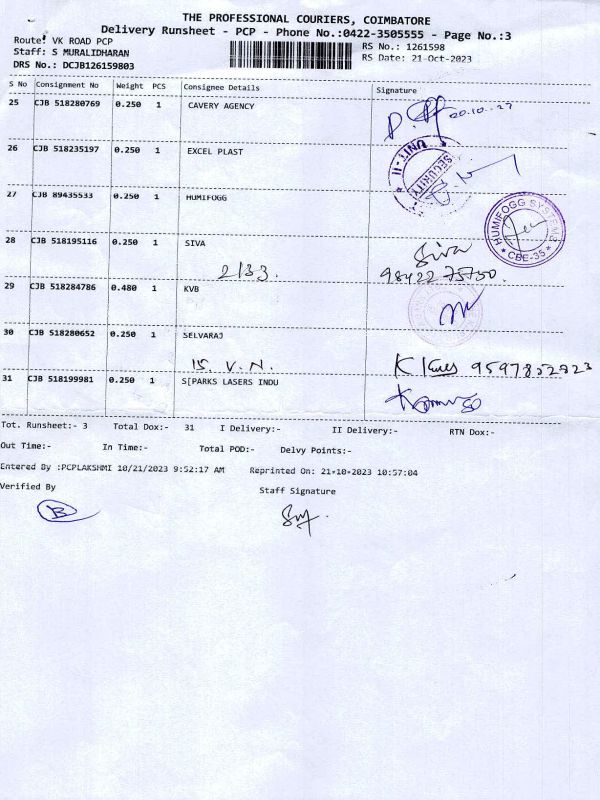 THE PROFESSIONAL COURIERS, COIMBATORE
Delivery Runsheet - PCP - Phone No.:0422-3505555 - Page No.:3
Route: VK ROAD PCP
Staff: S MURALIDHARAN
RS No.: 1261598
DRS No.: DCJB126159803
RS Date: 21-Oct-2023
S No Consignment No Weight PCS Consignee Details Signature
25 CJB 518280769 0.250 1 CAVERY AGENCY
26 CJB 518235197 0.250 1 EXCEL PLAST
UNIT-II
SECURITY
27 CJB 89435533 0.250 1 HUMIFOGG
HUMIFOGG SYSTEMS
* CBE-35 *
28 CJB 518195116 0.250 1 SIVA Siva
2/33. 98422 75750.
29 CJB 518284786 0.480 1 KVB
30 CJB 518280652 0.250 1 SELVARAJ
15. V. N. K
31 CJB 518199981 0.250 1 S[PARKS LASERS INDU
Tot. Runsheet:- 3 Total Dox:- 31 I Delivery:- II Delivery:- RTN Dox:-
Out Time:- In Time:- Total POD:- Delvy Points:-
Entered By :PCPLAKSHMI 10/21/2023 9:52:17 AM Reprinted On: 21-10-2023 10:57:04
Verified By Staff Signature